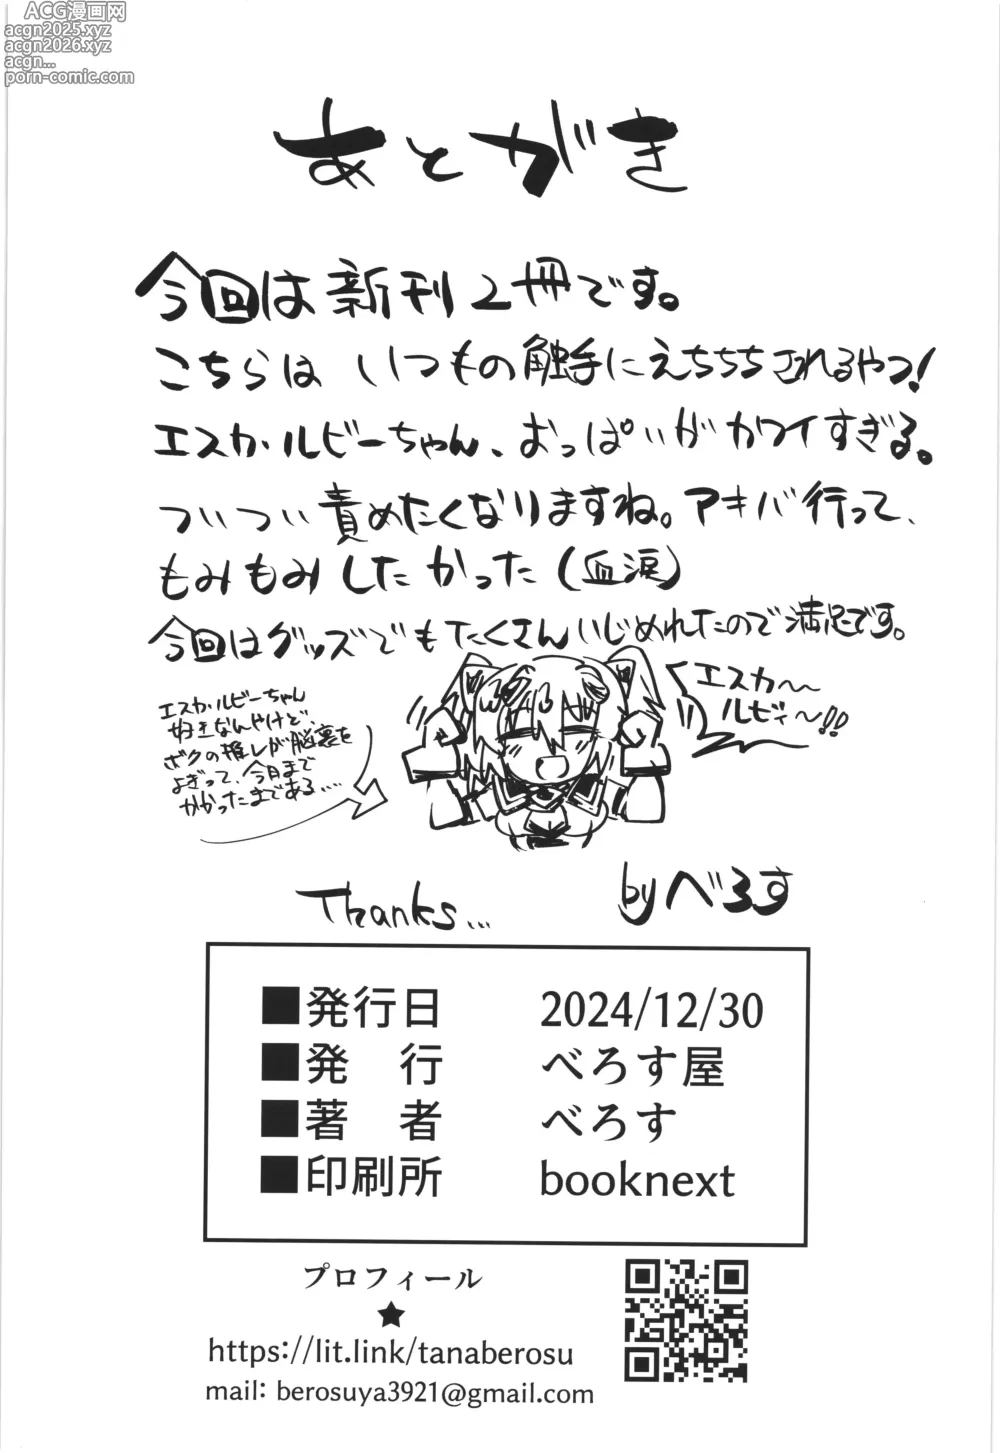 ACG漫画网
acgn2025.xyz
acgn2026.xyz
acgn...
porn-comic.com
あとがき
今回は新刊2冊です。
こちらは いつもの触手にえちちちされるやつ!
エスカ・ルビーちゃん、おっぱいがカワイすぎる。
ついつい責めたくなりますね。アキバ行って、
もみもみしたかった(血涙)
今回はグッズでもたくさんいじめれたので満足です。
エスカ・ルビーちゃん
好きなんやけど、
ボクの推しが脳裏を
よぎって、今月まで
かかったまである....
エスカ〜〜
ルビィ〜!!
Thanks...
byべろす
■発行日 2024/12/30
■発 行 べろす屋
■著 者 べろす
■印刷所 booknext
プロフィール
★
https://lit.link/tanaberosu
mail: berosuya3921@gmail.com